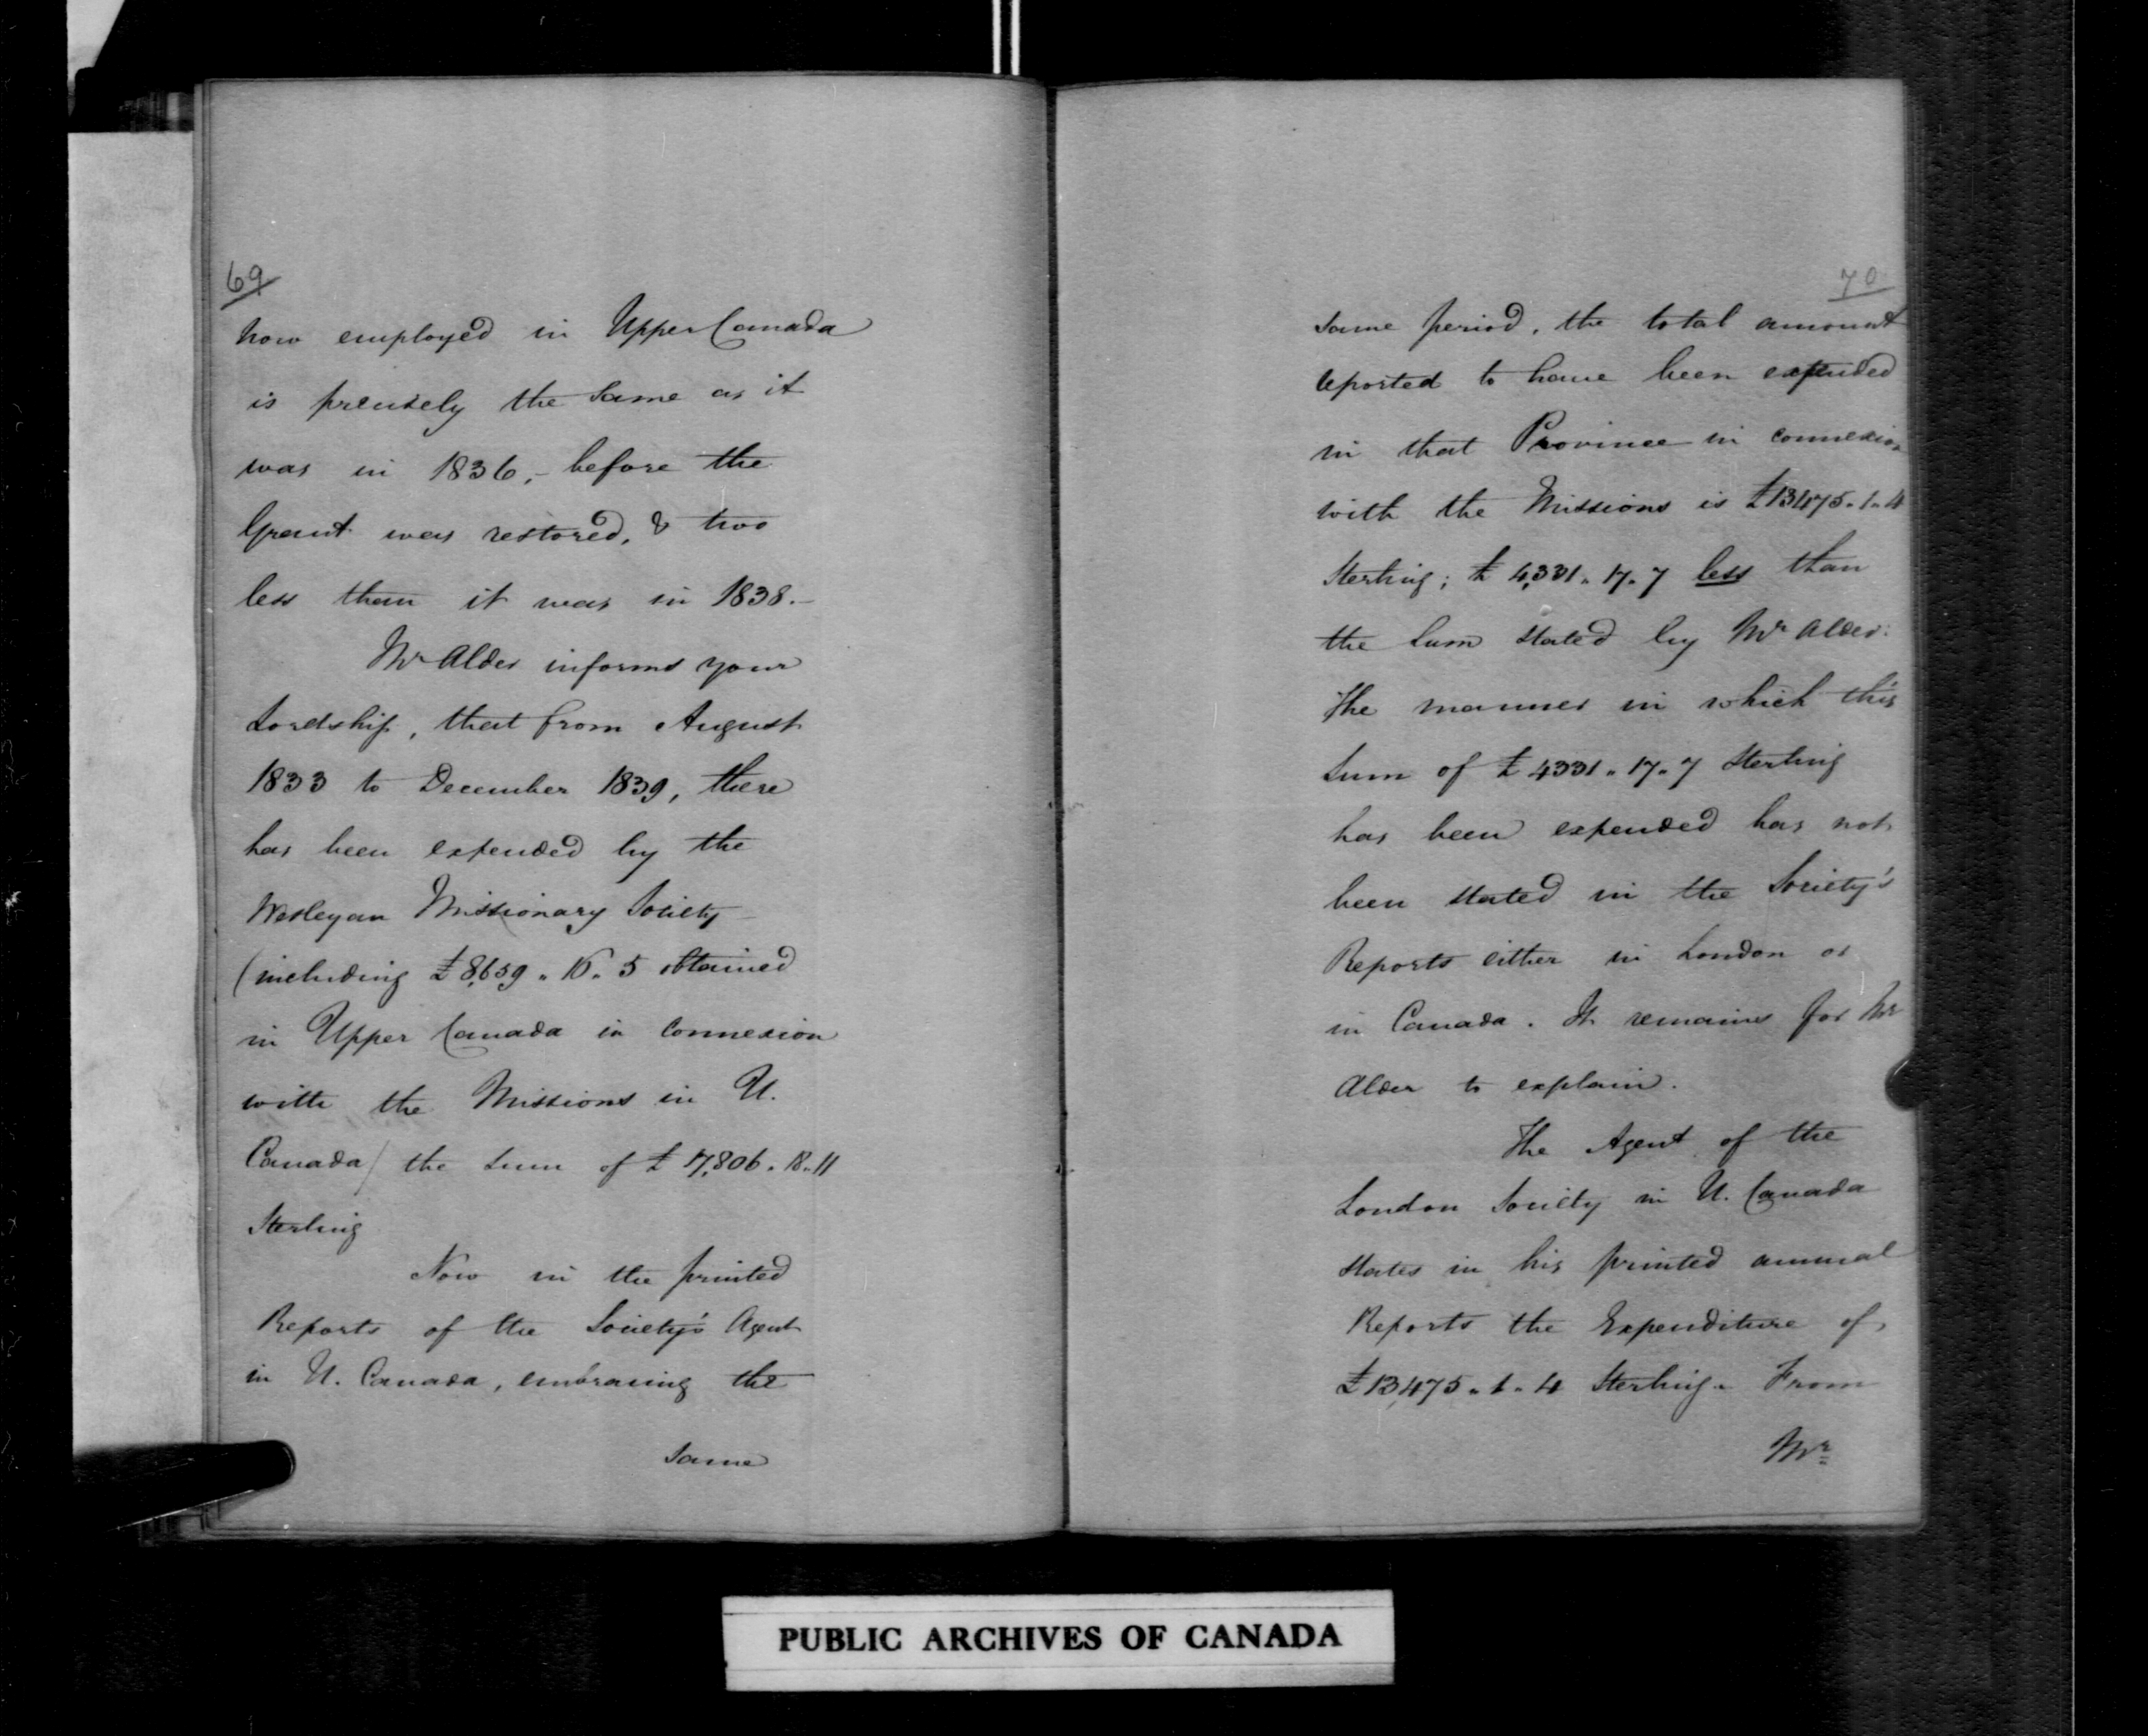 69
now employed in Upper Canada
is precisely the same as it
was in 1836,- before the
Grant was restored, & two
less than it was in 1838.-
Mr Alder informs your
Lordship, that from August
1833 to December 1839, there
has been expended by the
Wesleyan Missionary Society
(including £8,659 " 16 " 5 obtained
in Upper Canada in connexion
with the Missions in U.
Canada) the sum of £17,806 " 18 " 11
Sterling
Now in the printed
Reports of the Society's Agent
in U. Canada, embracing the
same
70
same period, the total amount
reported to have been expended
in that Province in connexion
with the Missions is £13475 " 1 " 4
Sterling; £4,331 " 17 " 7 less than
the sum stated by Mr Alder.
The manner in which this
sum of £4331 " 17 " 7 Sterling
has been expended has not
been stated in the Society's
Reports either in London or
in Canada. It remains for Mr
Alder to explain.
The Agent of the
London Society in U. Canada
states in his printed annual
Reports the Expenditure of
£13,475 " 1 " 4 Sterling. From
Mr
PUBLIC ARCHIVES OF CANADA